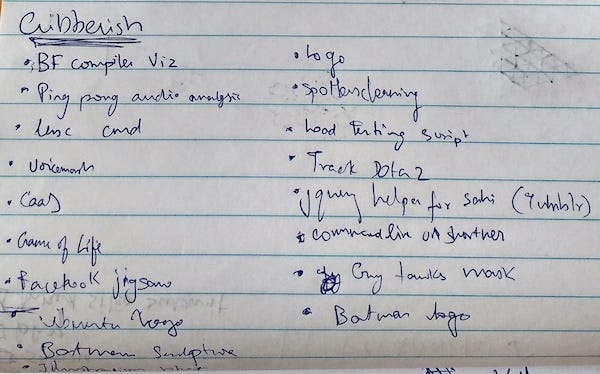 Gibberish
• BF compiler Viz
• Ping pong audio analysis
• cmd
• Voicemash
• CaaS
• Game of Life
• Facebook jigsaw
• Ubuntu logo
• Batman Sculpture
• Illustration
• Logo
• spotless cleaning
• Load Testing script
• Track DOTA 2
• jquery helper for sahi (Tumblr)
• commandline url shortner
• Guy fawks mask
• Batman logo